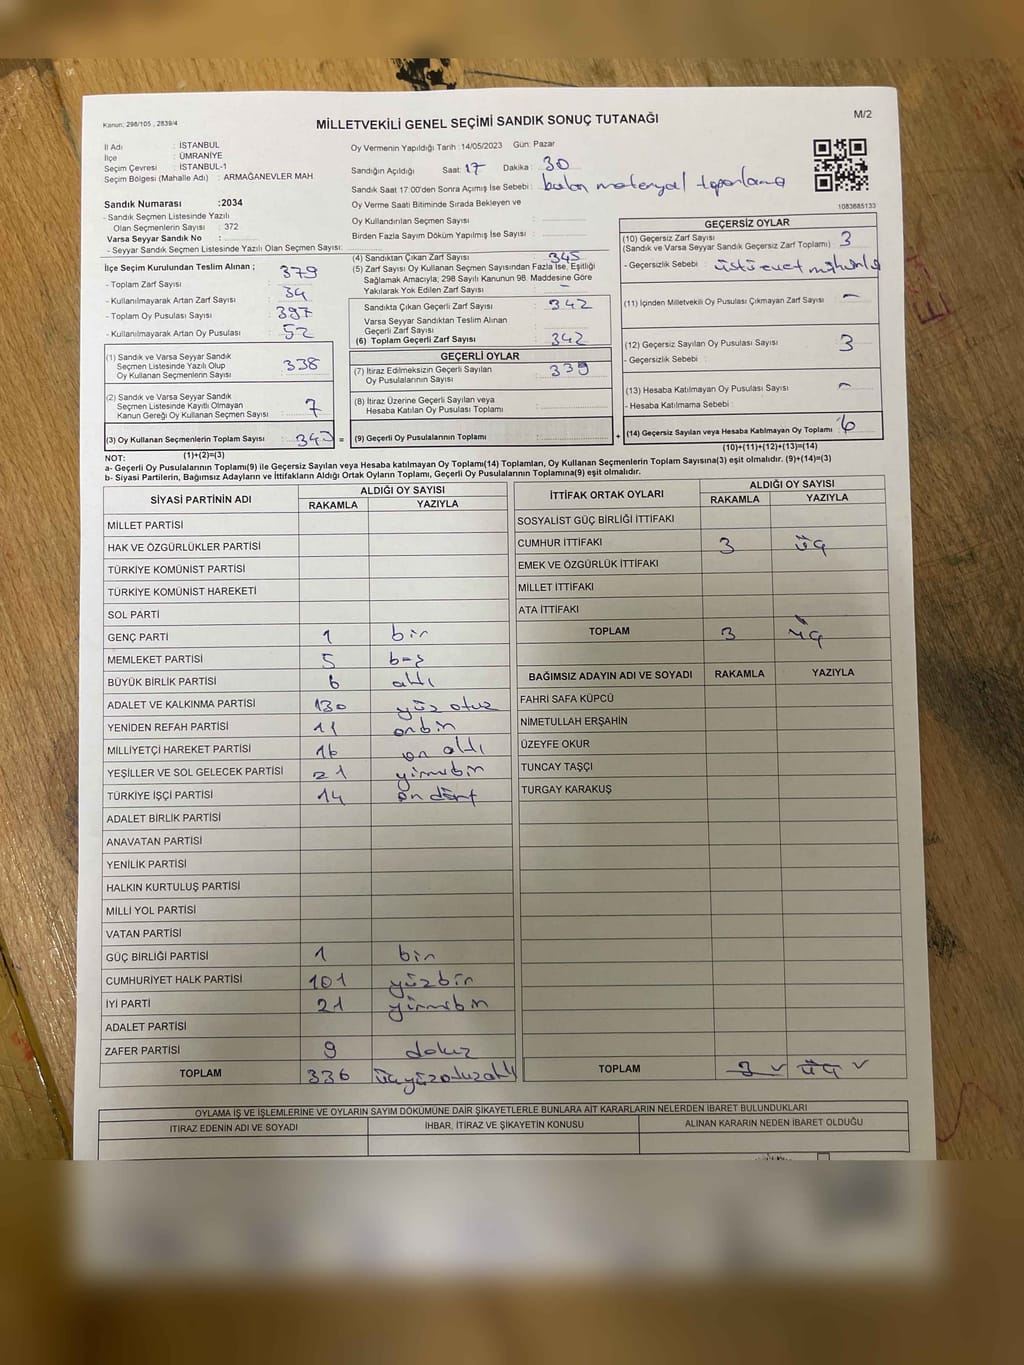 Kanun; 298/105 , 2839/4
M/2
MİLLETVEKİLİ GENEL SEÇİMİ SANDIK SONUÇ TUTANAĞI
İl Adı : İSTANBUL
İlçe : ÜMRANİYE
Seçim Çevresi : İSTANBUL-1
Seçim Bölgesi (Mahalle Adı) : ARMAĞANEVLER MAH
Sandık Numarası :2034
- Sandık Seçmen Listesinde Yazılı
Olan Seçmenlerin Sayısı : 372
Varsa Seyyar Sandık No :
- Seyyar Sandık Seçmen Listesinde Yazılı Olan Seçmen Sayısı:
Oy Vermenin Yapıldığı Tarih :14/05/2023 Gün: Pazar
Sandığın Açıldığı Saat: 17 Dakika : 30
Sandık Saat 17:00'den Sonra Açımış İse Sebebi : materyal toparlama
Oy Verme Saati Bitiminde Sırada Bekleyen ve
Oy Kullandırılan Seçmen Sayısı :
Birden Fazla Sayım Döküm Yapılmış İse Sayısı :
1083685133
İlçe Seçim Kurulundan Teslim Alınan ;
- Toplam Zarf Sayısı : 379
- Kullanılmayarak Artan Zarf Sayısı : 34
- Toplam Oy Pusulası Sayısı : 397
- Kullanılmayarak Artan Oy Pusulası : 52
(1) Sandık ve Varsa Seyyar Sandık
Seçmen Listesinde Yazılı Olup
Oy Kullanan Seçmenlerin Sayısı : 338
(2) Sandık ve Varsa Seyyar Sandık
Seçmen Listesinde Kayıtlı Olmayan
Kanun Gereği Oy Kullanan Seçmen Sayısı : 7
(3) Oy Kullanan Seçmenlerin Toplam Sayısı : =
(4) Sandıktan Çıkan Zarf Sayısı : 345
(5) Zarf Sayısı Oy Kullanan Seçmen Sayısından Fazla İse, Eşitliği
Sağlamak Amacıyla; 298 Sayılı Kanunun 98. Maddesine Göre
Yakılarak Yok Edilen Zarf Sayısı : –
Sandıkta Çıkan Geçerli Zarf Sayısı : 342
Varsa Seyyar Sandıktan Teslim Alınan
Geçerli Zarf Sayısı :
(6) Toplam Geçerli Zarf Sayısı : 342
GEÇERLİ OYLAR
(7) İtiraz Edilmeksizin Geçerli Sayılan
Oy Pusulalarının Sayısı : 339
(8) İtiraz Üzerine Geçerli Sayılan veya
Hesaba Katılan Oy Pusulası Toplamı :
(9) Geçerli Oy Pusulalarının Toplamı : +
GEÇERSİZ OYLAR
(10) Geçersiz Zarf Sayısı : 3
(Sandık ve Varsa Seyyar Sandık Geçersiz Zarf Toplamı)
- Geçersizlik Sebebi :
(11) İçinden Milletvekili Oy Pusulası Çıkmayan Zarf Sayısı : –
(12) Geçersiz Sayılan Oy Pusulası Sayısı : 3
- Geçersizlik Sebebi :
(13) Hesaba Katılmayan Oy Pusulası Sayısı : –
- Hesaba Katılmama Sebebi :
(14) Geçersiz Sayılan veya Hesaba Katılmayan Oy Toplamı : 6
NOT: (1)+(2)=(3)
(10)+(11)+(12)+(13)=(14)
a- Geçerli Oy Pusulalarının Toplamı(9) ile Geçersiz Sayılan veya Hesaba katılmayan Oy Toplamı(14) Toplamları, Oy Kullanan Seçmenlerin Toplam Sayısına(3) eşit olmalıdır. (9)+(14)=(3)
b- Siyasi Partilerin, Bağımsız Adayların ve İttifakların Aldığı Ortak Oyların Toplamı, Geçerli Oy Pusulalarının Toplamına(9) eşit olmalıdır.
SİYASİ PARTİNİN ADI ALDIĞI OY SAYISI
RAKAMLA YAZIYLA
MİLLET PARTİSİ
HAK VE ÖZGÜRLÜKLER PARTİSİ
TÜRKİYE KOMÜNİST PARTİSİ
TÜRKİYE KOMÜNİST HAREKETİ
SOL PARTİ
GENÇ PARTİ 1 bir
MEMLEKET PARTİSİ 5 beş
BÜYÜK BİRLİK PARTİSİ 6 altı
ADALET VE KALKINMA PARTİSİ 130 yüz otuz
YENİDEN REFAH PARTİSİ 11 onbir
MİLLİYETÇİ HAREKET PARTİSİ 16 on altı
YEŞİLLER VE SOL GELECEK PARTİSİ 21 yirmibir
TÜRKİYE İŞÇİ PARTİSİ 14 on dört
ADALET BİRLİK PARTİSİ
ANAVATAN PARTİSİ
YENİLİK PARTİSİ
HALKIN KURTULUŞ PARTİSİ
MİLLİ YOL PARTİSİ
VATAN PARTİSİ
GÜÇ BİRLİĞİ PARTİSİ 1 bir
CUMHURİYET HALK PARTİSİ 101 yüzbir
İYİ PARTİ 21 yirmibir
ADALET PARTİSİ
ZAFER PARTİSİ 9 dokuz
TOPLAM 336 üçyüzotuzaltı
İTTİFAK ORTAK OYLARI ALDIĞI OY SAYISI
RAKAMLA YAZIYLA
SOSYALİST GÜÇ BİRLİĞİ İTTİFAKI
CUMHUR İTTİFAKI 3 üç
EMEK VE ÖZGÜRLÜK İTTİFAKI
MİLLET İTTİFAKI
ATA İTTİFAKI
TOPLAM 3 üç
BAĞIMSIZ ADAYIN ADI VE SOYADI RAKAMLA YAZIYLA
FAHRİ SAFA KÜPCÜ
NİMETULLAH ERŞAHİN
ÜZEYFE OKUR
TUNCAY TAŞÇI
TURGAY KARAKUŞ
TOPLAM 3 üç
OYLAMA İŞ VE İŞLEMLERİNE VE OYLARIN SAYIM DÖKÜMÜNE DAİR ŞİKAYETLERLE BUNLARA AİT KARARLARIN NELERDEN İBARET BULUNDUKLARI
İTİRAZ EDENİN ADI VE SOYADI İHBAR, İTİRAZ VE ŞİKAYETİN KONUSU ALINAN KARARIN NEDEN İBARET OLDUĞU